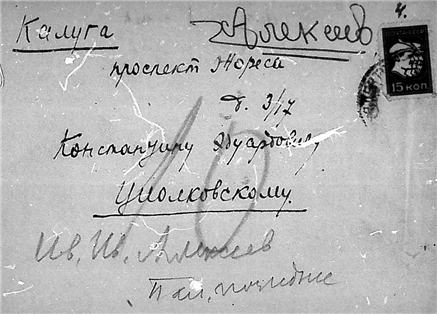 Калуга
Алексеев
4.
15 КОП.
проспект Жореса
д. 3/17
Константину Эдуардовичу
Циолковскому.
10
Ив. Ив. Алексеев